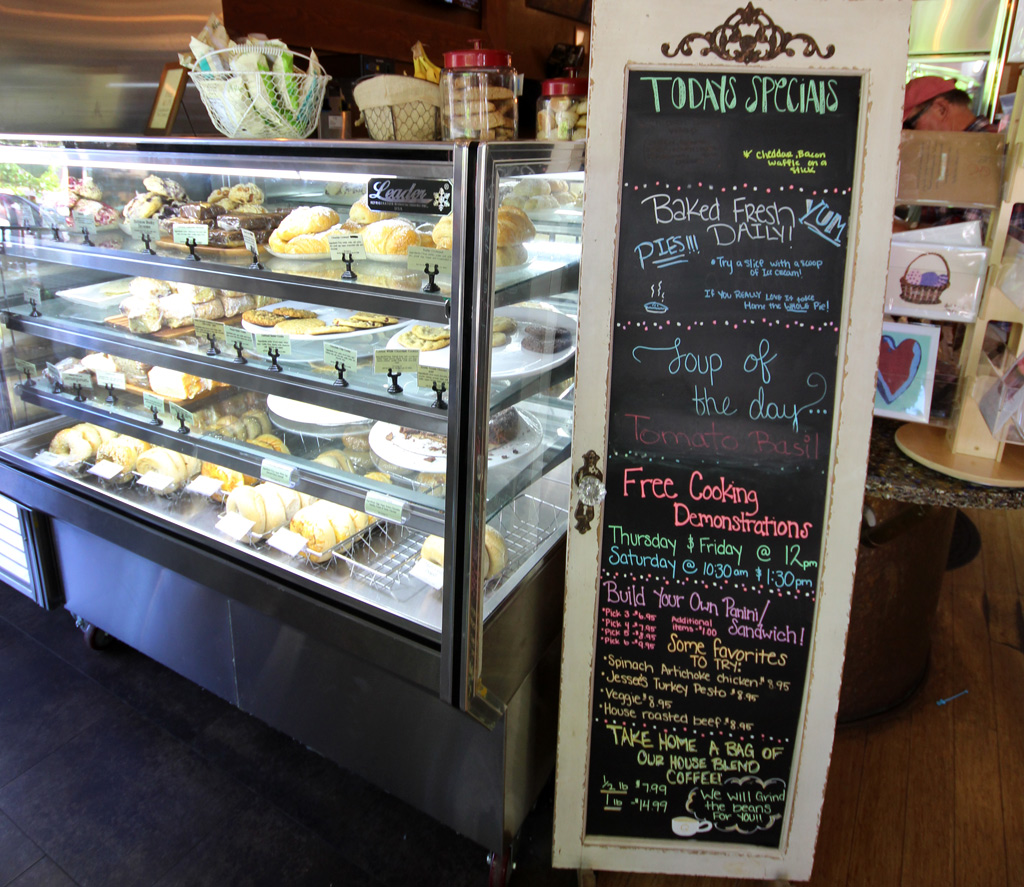 TODAYS SPECIALS
Cheddar, Bacon
waffle on a
stick
BAKED FRESH
DAILY!
YUM
PIES!!!
• Try a slice with a scoop
of Ice Cream!
If YOU REALLY LOVE It take
Home the WHOLE Pie!
Soup of
the day...
Tomato Basil
Free Cooking
Demonstrations
Thursday & Friday @ 12pm
Saturday @ 10:30am & 1:30pm
Build Your Own Panini/
Sandwich!
• Pick 3 $6.95
• Pick 4 $7.95
• Pick 5 $8.95
• Pick 6 $9.95
Additional
items $1.00
Some favorites
TO TRY:
• Spinach Artichoke chicken $8.95
• Jessee's Turkey Pesto $8.95
• Veggie $8.95
• House roasted beef $8.95
TAKE HOME A BAG OF
OUR HOUSE BLEND
COFFEE!
1/2 lb $7.99
1 lb $14.99
We will Grind
the beans
FOR YOU!!
Leader